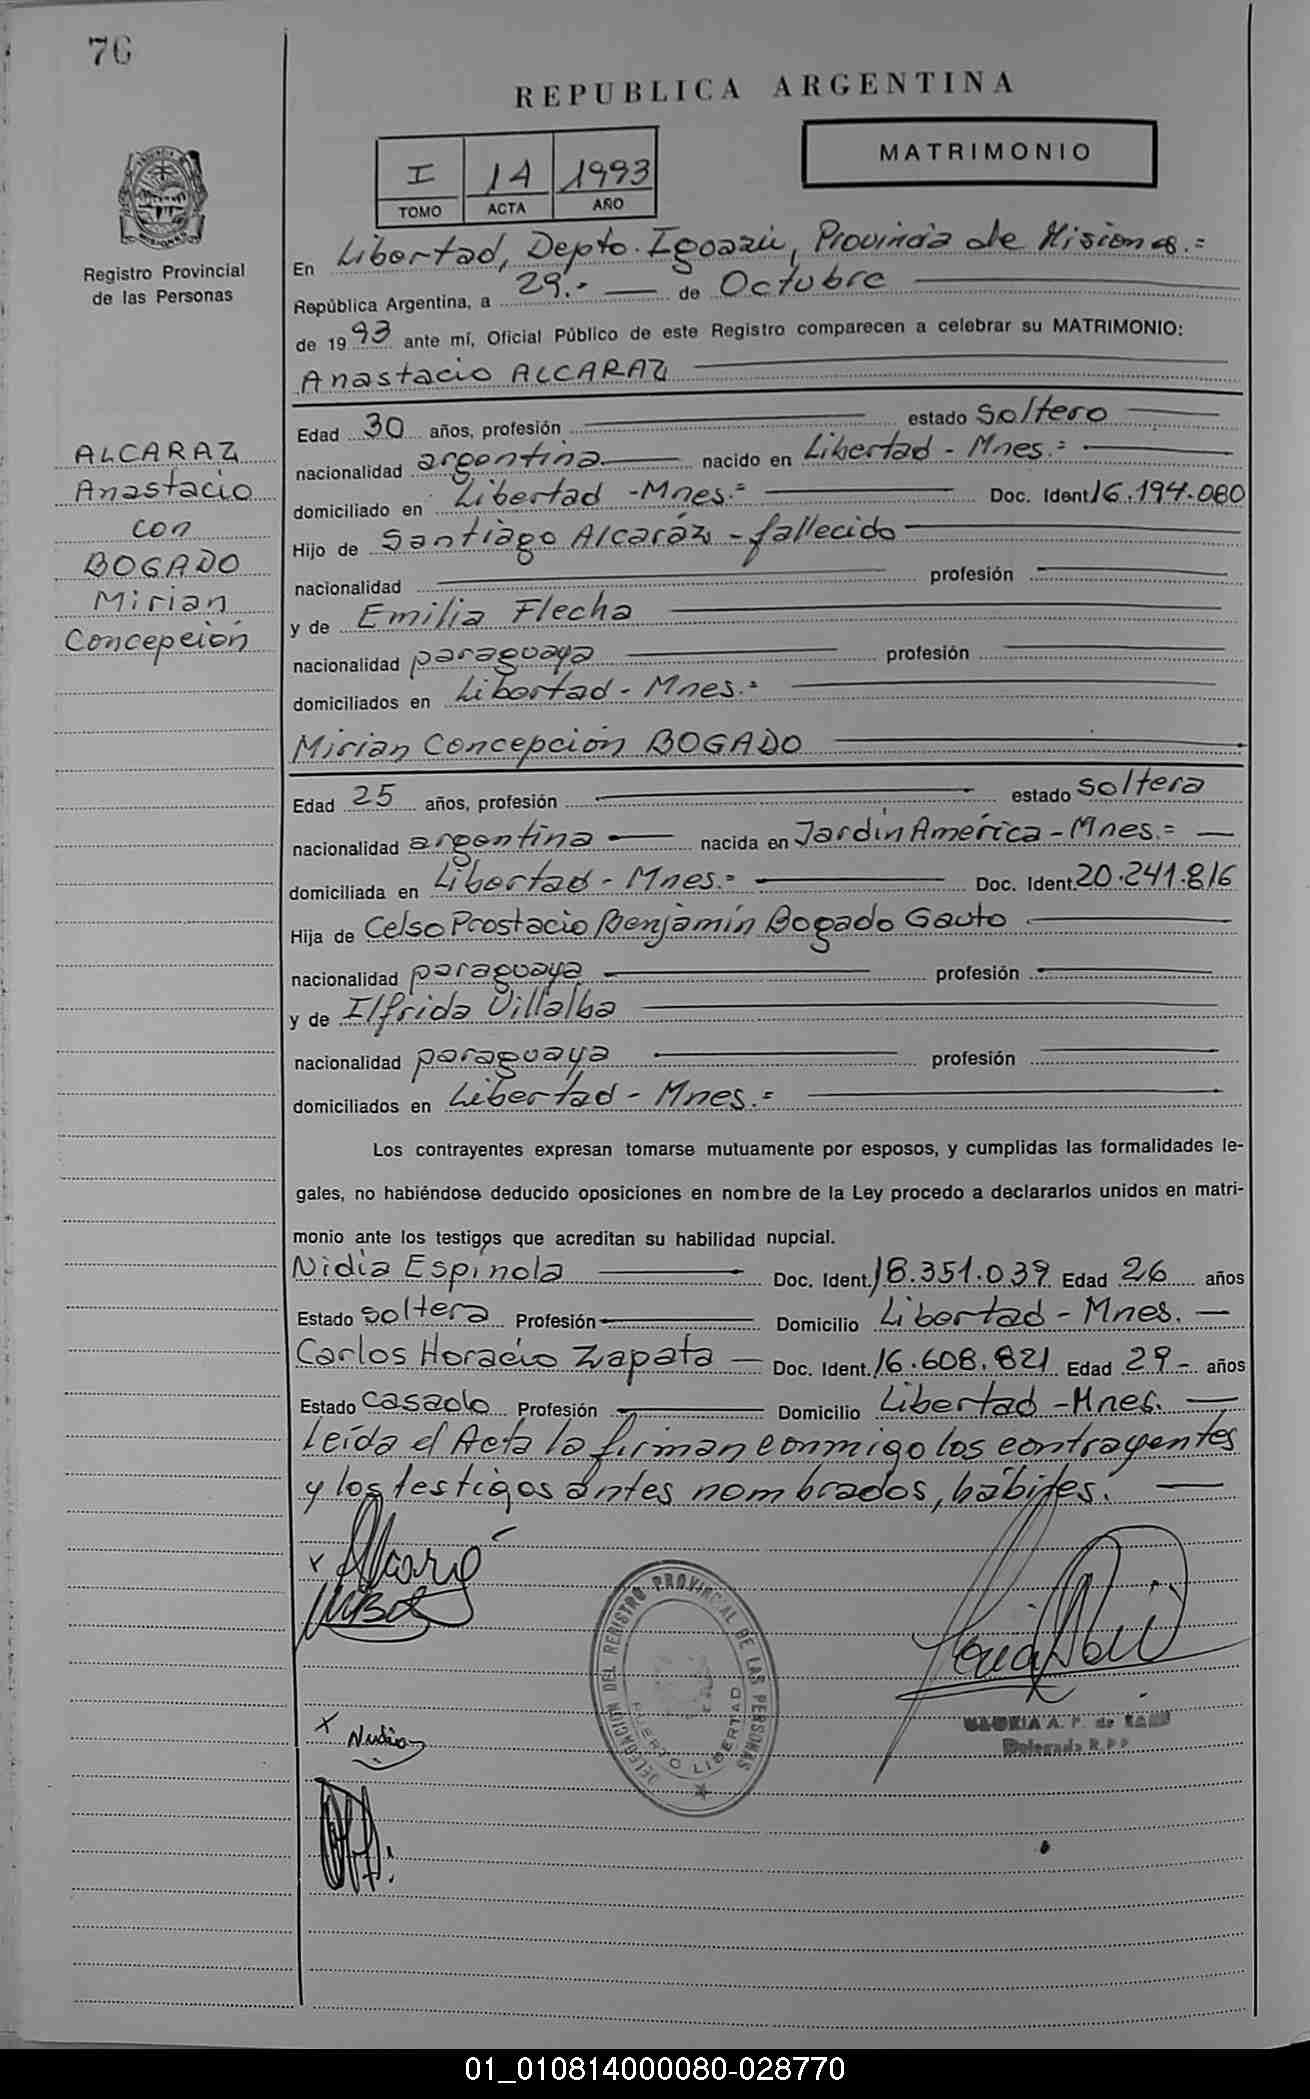 76
REPUBLICA ARGENTINA
MATRIMONIO
I 14 1993
TOMO ACTA AÑO
Registro Provincial
de las Personas
ALCARAZ
Anastacio
con
BOGADO
Mirian
Concepción
En Libertad, Depto. Igoazú, Provincia de Misiones.=
República Argentina, a 29.- de Octubre
de 1993 ante mí, Oficial Público de este Registro comparecen a celebrar su MATRIMONIO:
Anastacio ALCARAZ
Edad 30 años, profesión estado Soltero
nacionalidad argentina nacido en Libertad - Mnes.=
domiciliado en Libertad - Mnes.= Doc. Ident. 16.194.080
Hijo de Santiago Alcaráz - fallecido
nacionalidad profesión
y de Emilia Flecha
nacionalidad paraguaya profesión
domiciliados en Libertad - Mnes.=
Mirian Concepción BOGADO
Edad 25 años, profesión estado soltera
nacionalidad argentina nacida en Jardín América - Mnes.=
domiciliada en Libertad - Mnes.= Doc. Ident. 20.241.816
Hija de Celso Prostacio Benjamín Bogado Gauto
nacionalidad paraguaya profesión
y de Ilfrida Villalba
nacionalidad paraguaya profesión
domiciliados en Libertad - Mnes.=
Los contrayentes expresan tomarse mutuamente por esposos, y cumplidas las formalidades le-
gales, no habiéndose deducido oposiciones en nombre de la Ley procedo a declararlos unidos en matri-
monio ante los testigos que acreditan su habilidad nupcial.
Nidia Espínola Doc. Ident. 18.351.039 Edad 26 años
Estado soltera Profesión Domicilio Libertad - Mnes.
Carlos Horacio Zapata Doc. Ident. 16.608.821 Edad 29- años
Estado casado Profesión Domicilio Libertad - Mnes.
Leída el Acta la firman conmigo los contrayentes
y los testigos antes nombrados, hábiles.
x Alcaraz
x Nidia
DELEGACION DEL REGISTRO PROVINCIAL DE LAS PERSONAS
PUERTO LIBERTAD
A. P. de
Delegada R.P.P
01_010814000080-028770